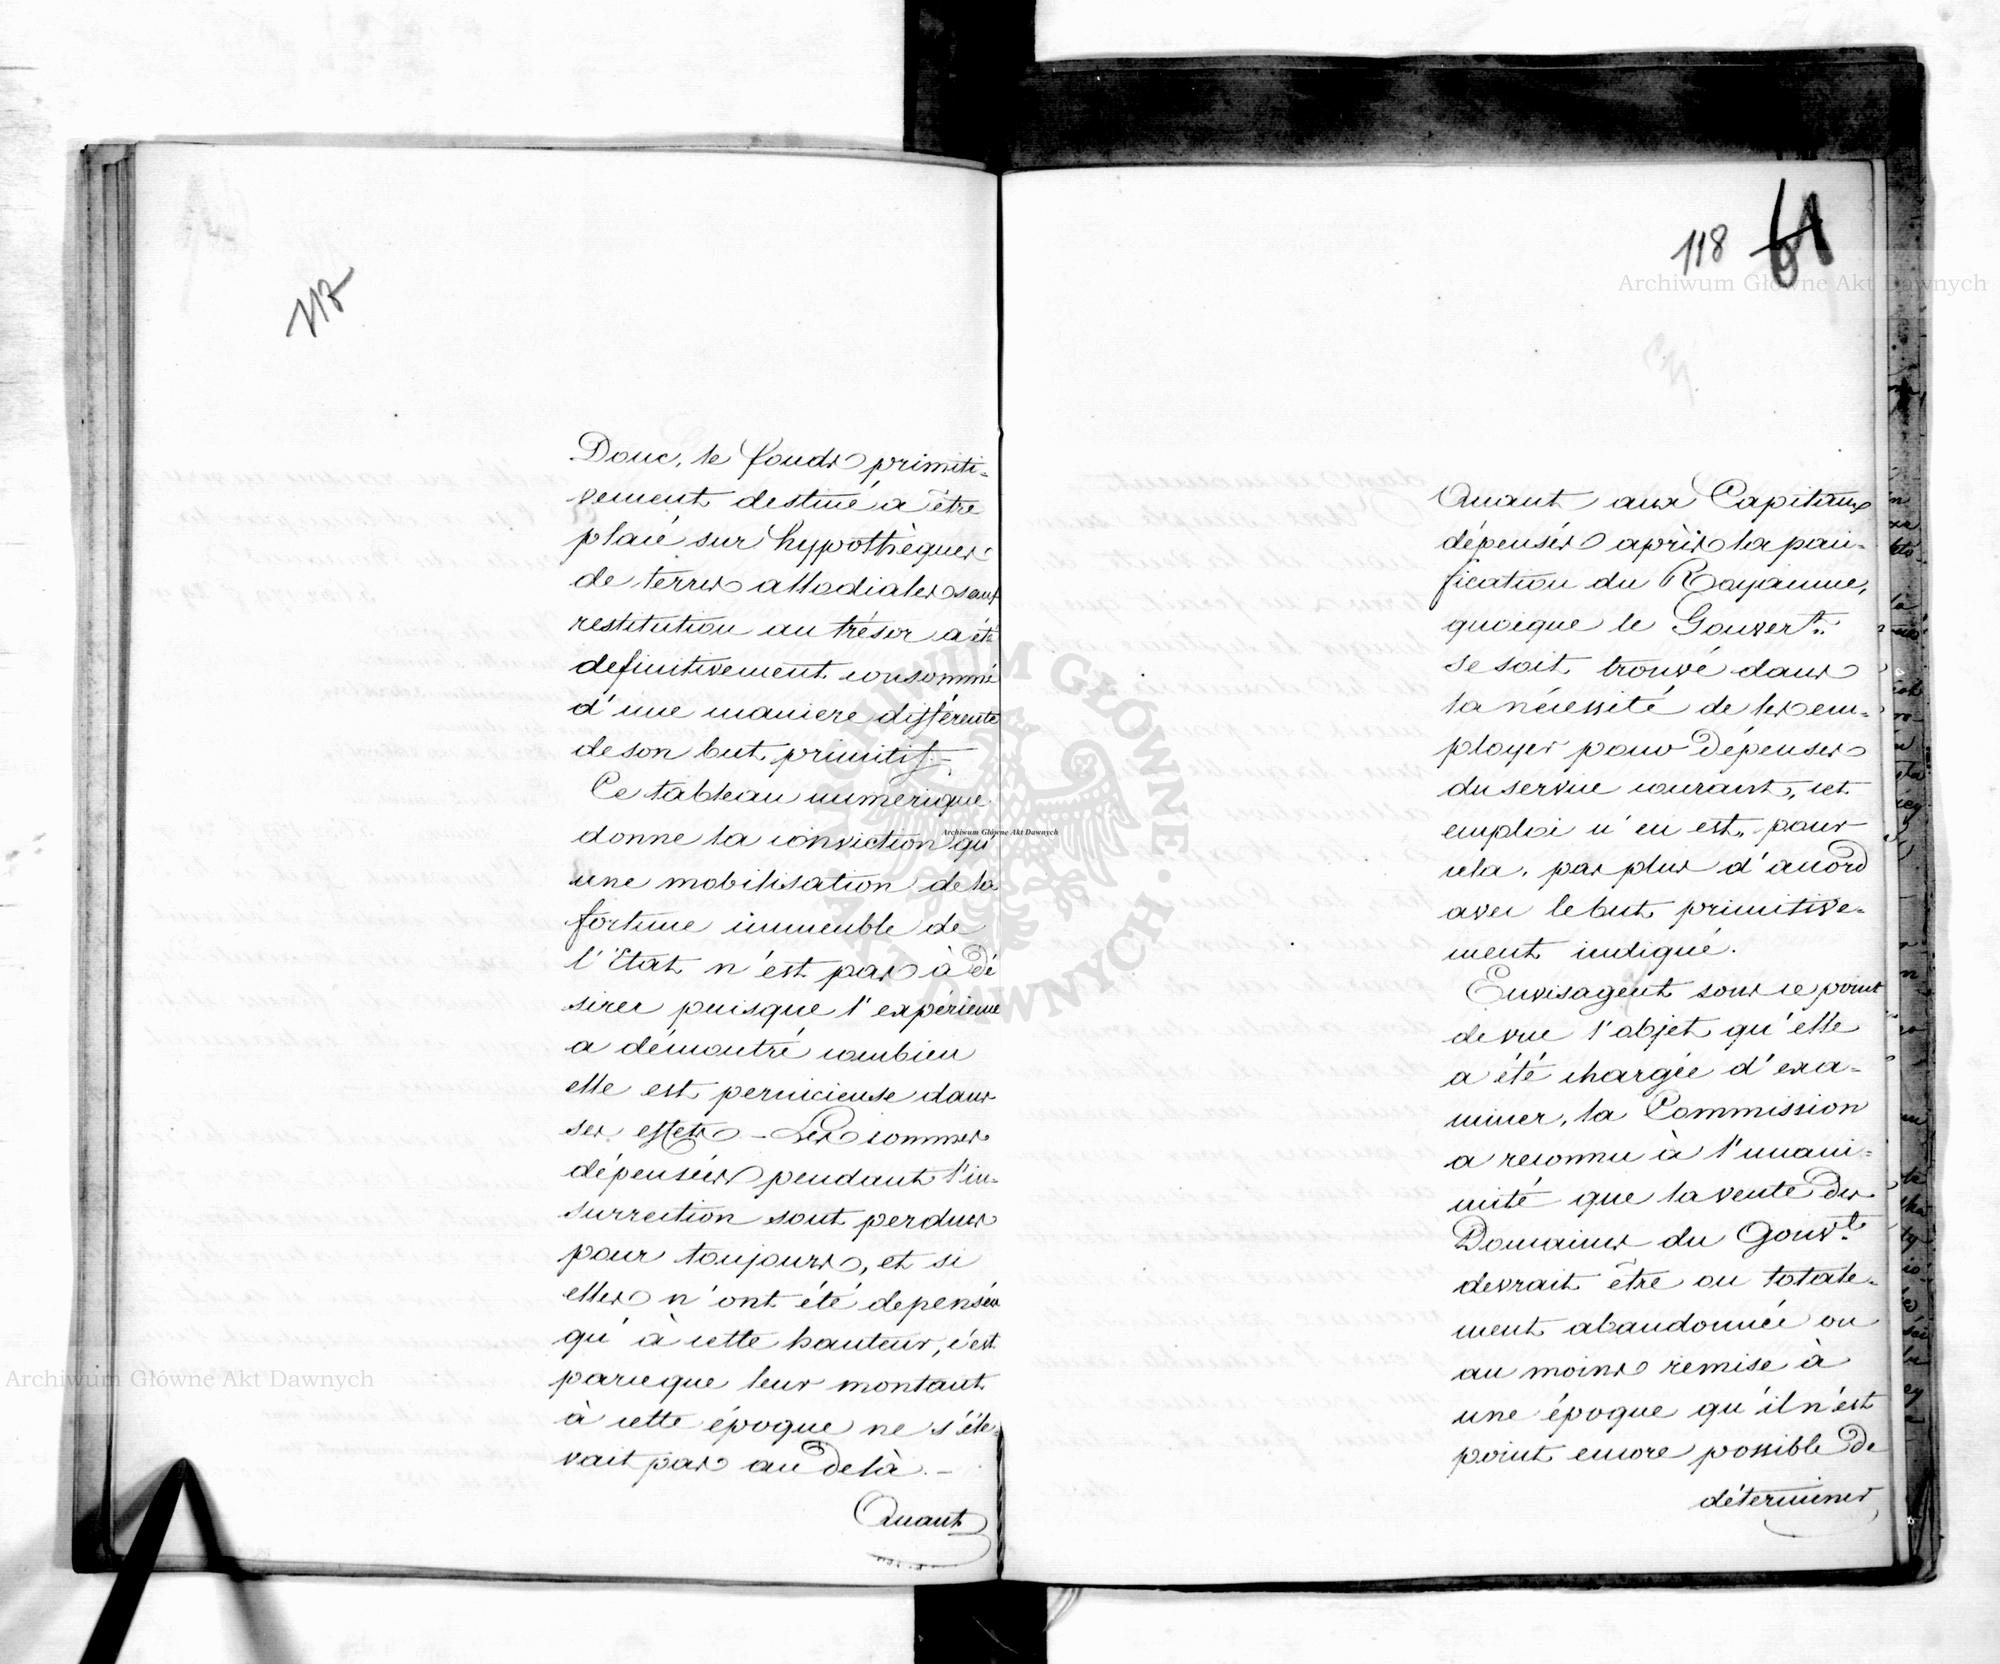 117
Donc, le fonds primiti-
vement destiné à être
placé sur hypothèques
de terres allodiales sauf
restitution au trésor a été
definitivement consommé
d'une maniere différente
de son but primitif.—
Ce tableau numerique
donne la conviction qu'
une mobilisation de la
fortune immeuble de
l'Etat n'est pas à dé
sirer puisque l'expérience
a démontré combien
elle est pernicieuse dans
ses effets — Les sommes
dépensées pendant l'in-
surrection sont perdues
pour toujours, et si
elles n'ont été depensées
qu'à cette hauteur, c'est
parceque leur montant
à cette époque ne s'éle-
vait pas au delà.—
Quant
118 61
Quant aux Capitaux
dépensés après la paci-
fication du Royaume,
quoique le Gouvert.
se soit trouvé dans
la nécessité de les em-
ployer pour dépenses
du service courant, cet
emploi n'en est, pour
cela, pas plus d'accord
avec le but primitive-
ment indiqué.
Envisageant sous ce point
de vue l'objet qu'elle
a été chargée d'exa-
miner, la Commission
a reconnu à l'unani-
mité que la vente des
Domaines du Gouvt.
devrait être ou totale-
ment abandonnée ou
au moins remise à
une époque qu'il n'est
point encore possible de
déterminer
Archiwum Główne Akt Dawnych
Archiwum Główne Akt Dawnych
Archiwum Główne Akt Dawnych
ARCHIWUM GŁÓWNE AKT DAWNYCH